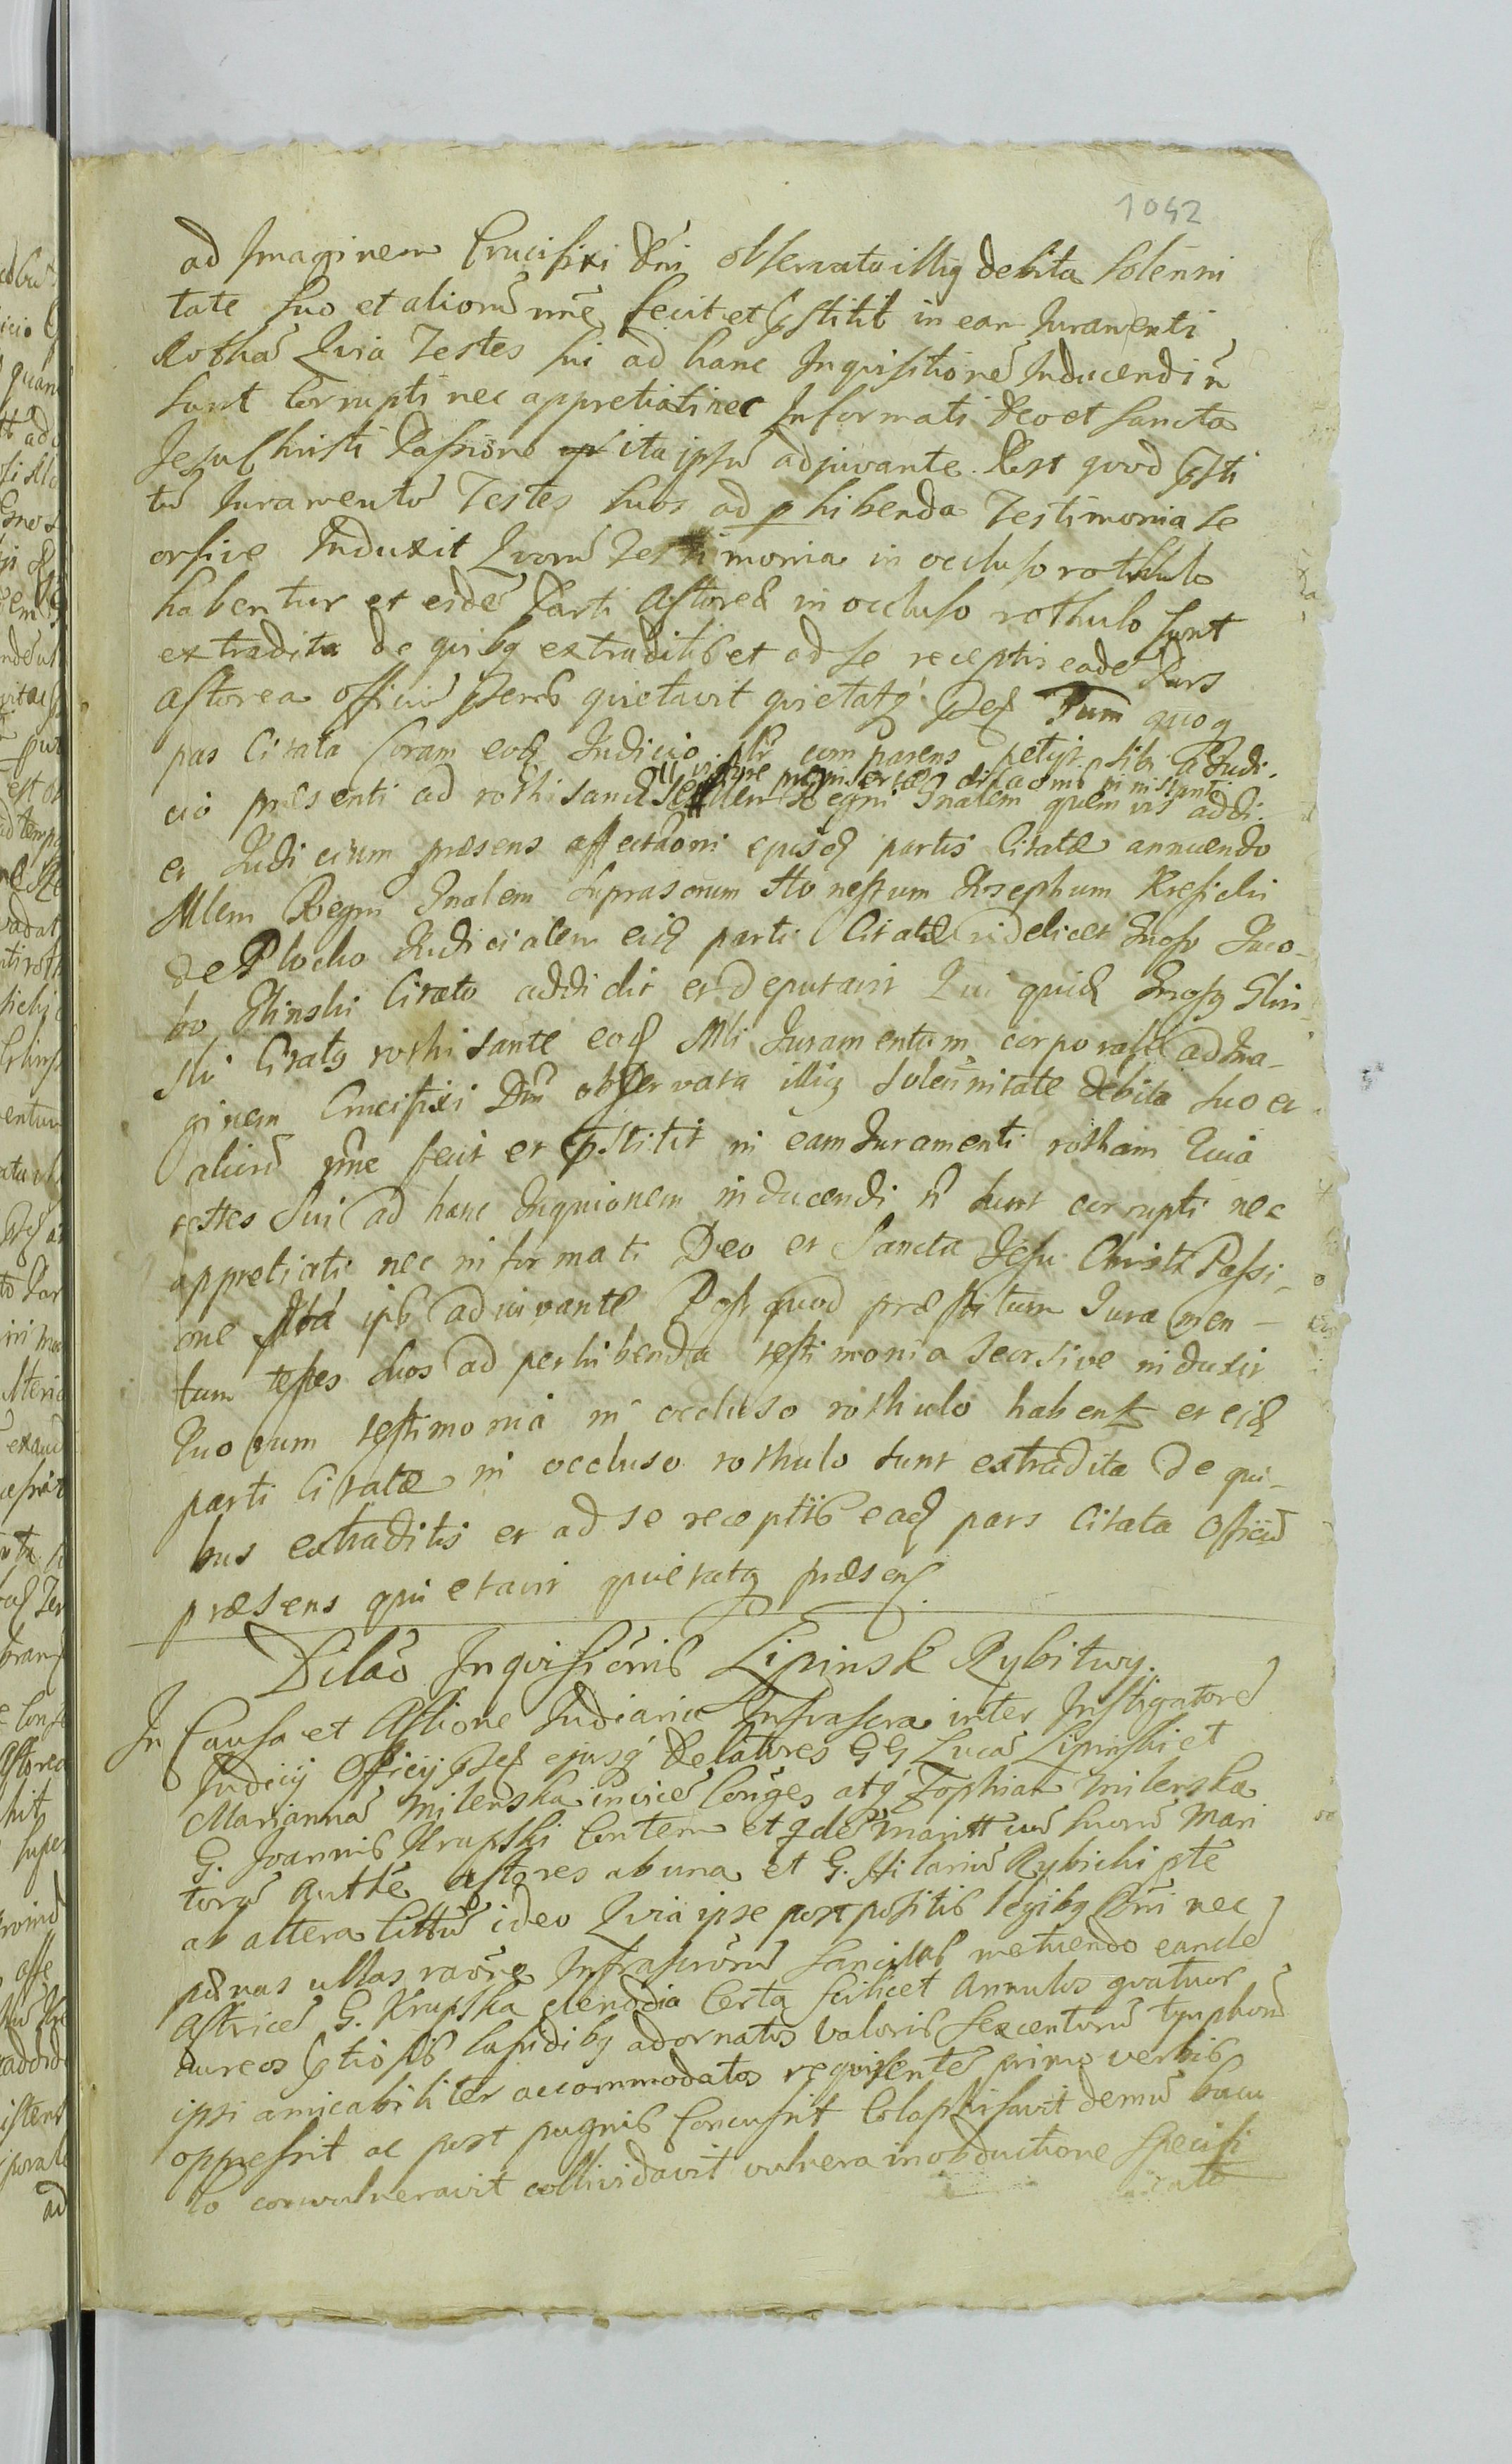 1042
ad Imaginem Crucifixi Dni observata illiq debita solenni
tate suo et aliorũ nñe fecit et pstitit in eam Juramenti
Rothã Quia Testes sui ad hanc Inquisitionẽ Inducendi ñ
sunt Corrupti nec appretiati nec Informati Deo et sancta
Jesu Christi Passione ita ipsũ adjuvante. Post quod psti
tũ Juramentũ Testes suos ad phibenda Testimonia se
orsive Induxit Quorũ Testimonia in occluso rothulo
habentur et eidẽ Parti Actoreæ in occluso rothulo sunt
extradita de quibq extraditis et ad se receptis eadẽ Pars
actorea officiũ psens quietavit quietatq psens Tum quoq
pas Citata Coram eodẽ Judicio plr comparens petyt sibi a Judi-
cio præsenti ad rothisand Mlem Regni Gnalem quem vis addi.
et Judicium præsens affectaõni ejusd partis Citatæ annuendo
Mlem Regni Gnalem suprascrum Honestum Josephum Kresicki
de Plocko Judicialem eid parti Citatæ videlicet Gnoso Jaco-
bo Glinski Citato addidit et deputavit Qui quid Gnosq Glin-
ski Citatq rothisante eod Mli Juramentum corporale ad Ima-
ginem Crucifixi Dni observata illiq solennitate debita suo et
aliorũ nñe fecit et pstitit in eam Juramenti rotham Quia
testes sui ad hanc Inquionem inducendi ñ sunt corrupti nec
appretiati nec informati Deo et Sancta Jesu Christi Passi-
one ita ipso adiuvante Post quod præstitum Juramen-
tum testes suos ad perhibenda testimonia seorsive induxit
Quorum testimonia in occluso rothulo habent et eid
parti Citatæ in occluso rothulo sunt extradita de qui-
bus extraditis et ad se receptis ead pars Citata Officiũ
præsens quietavit quietatq præsens.
Dilaõ Inquisiõnis Lipinsk Rybitwy.
In Causa et Actione Judiaria Infrascra inter Instigatorẽ
Judicij Officij psens ejusq Delatores GG Lucã Lipinski et
Mariannã Milenska invicẽ Coñges atq Zophiam Milenska
G. Joannis Krupski Contem et qdẽ maritt cũ suorũ Mari
torũ Autte Actores ab una et G. Hilariũ Rybicki pte
ab altera Cittũ ideo Quia ipse postpositis legibq Cõni nec
pænas ullas raõne Infrascrorũ sancitas metuendo eandẽ
Actricẽ G. Krupska clenodia Certa scilicet Annulos quatuor
aureos ptiosis lapidibq adornatos valoris sexcentorũ tymphorũ
ipsi amicabiliter accommodatos requirentẽ primo verbis
oppressit ac post pugnis Concussit Colaphisavit demũ bacu
lo convulneravit collividavit vulnera in obductione specifi
cata